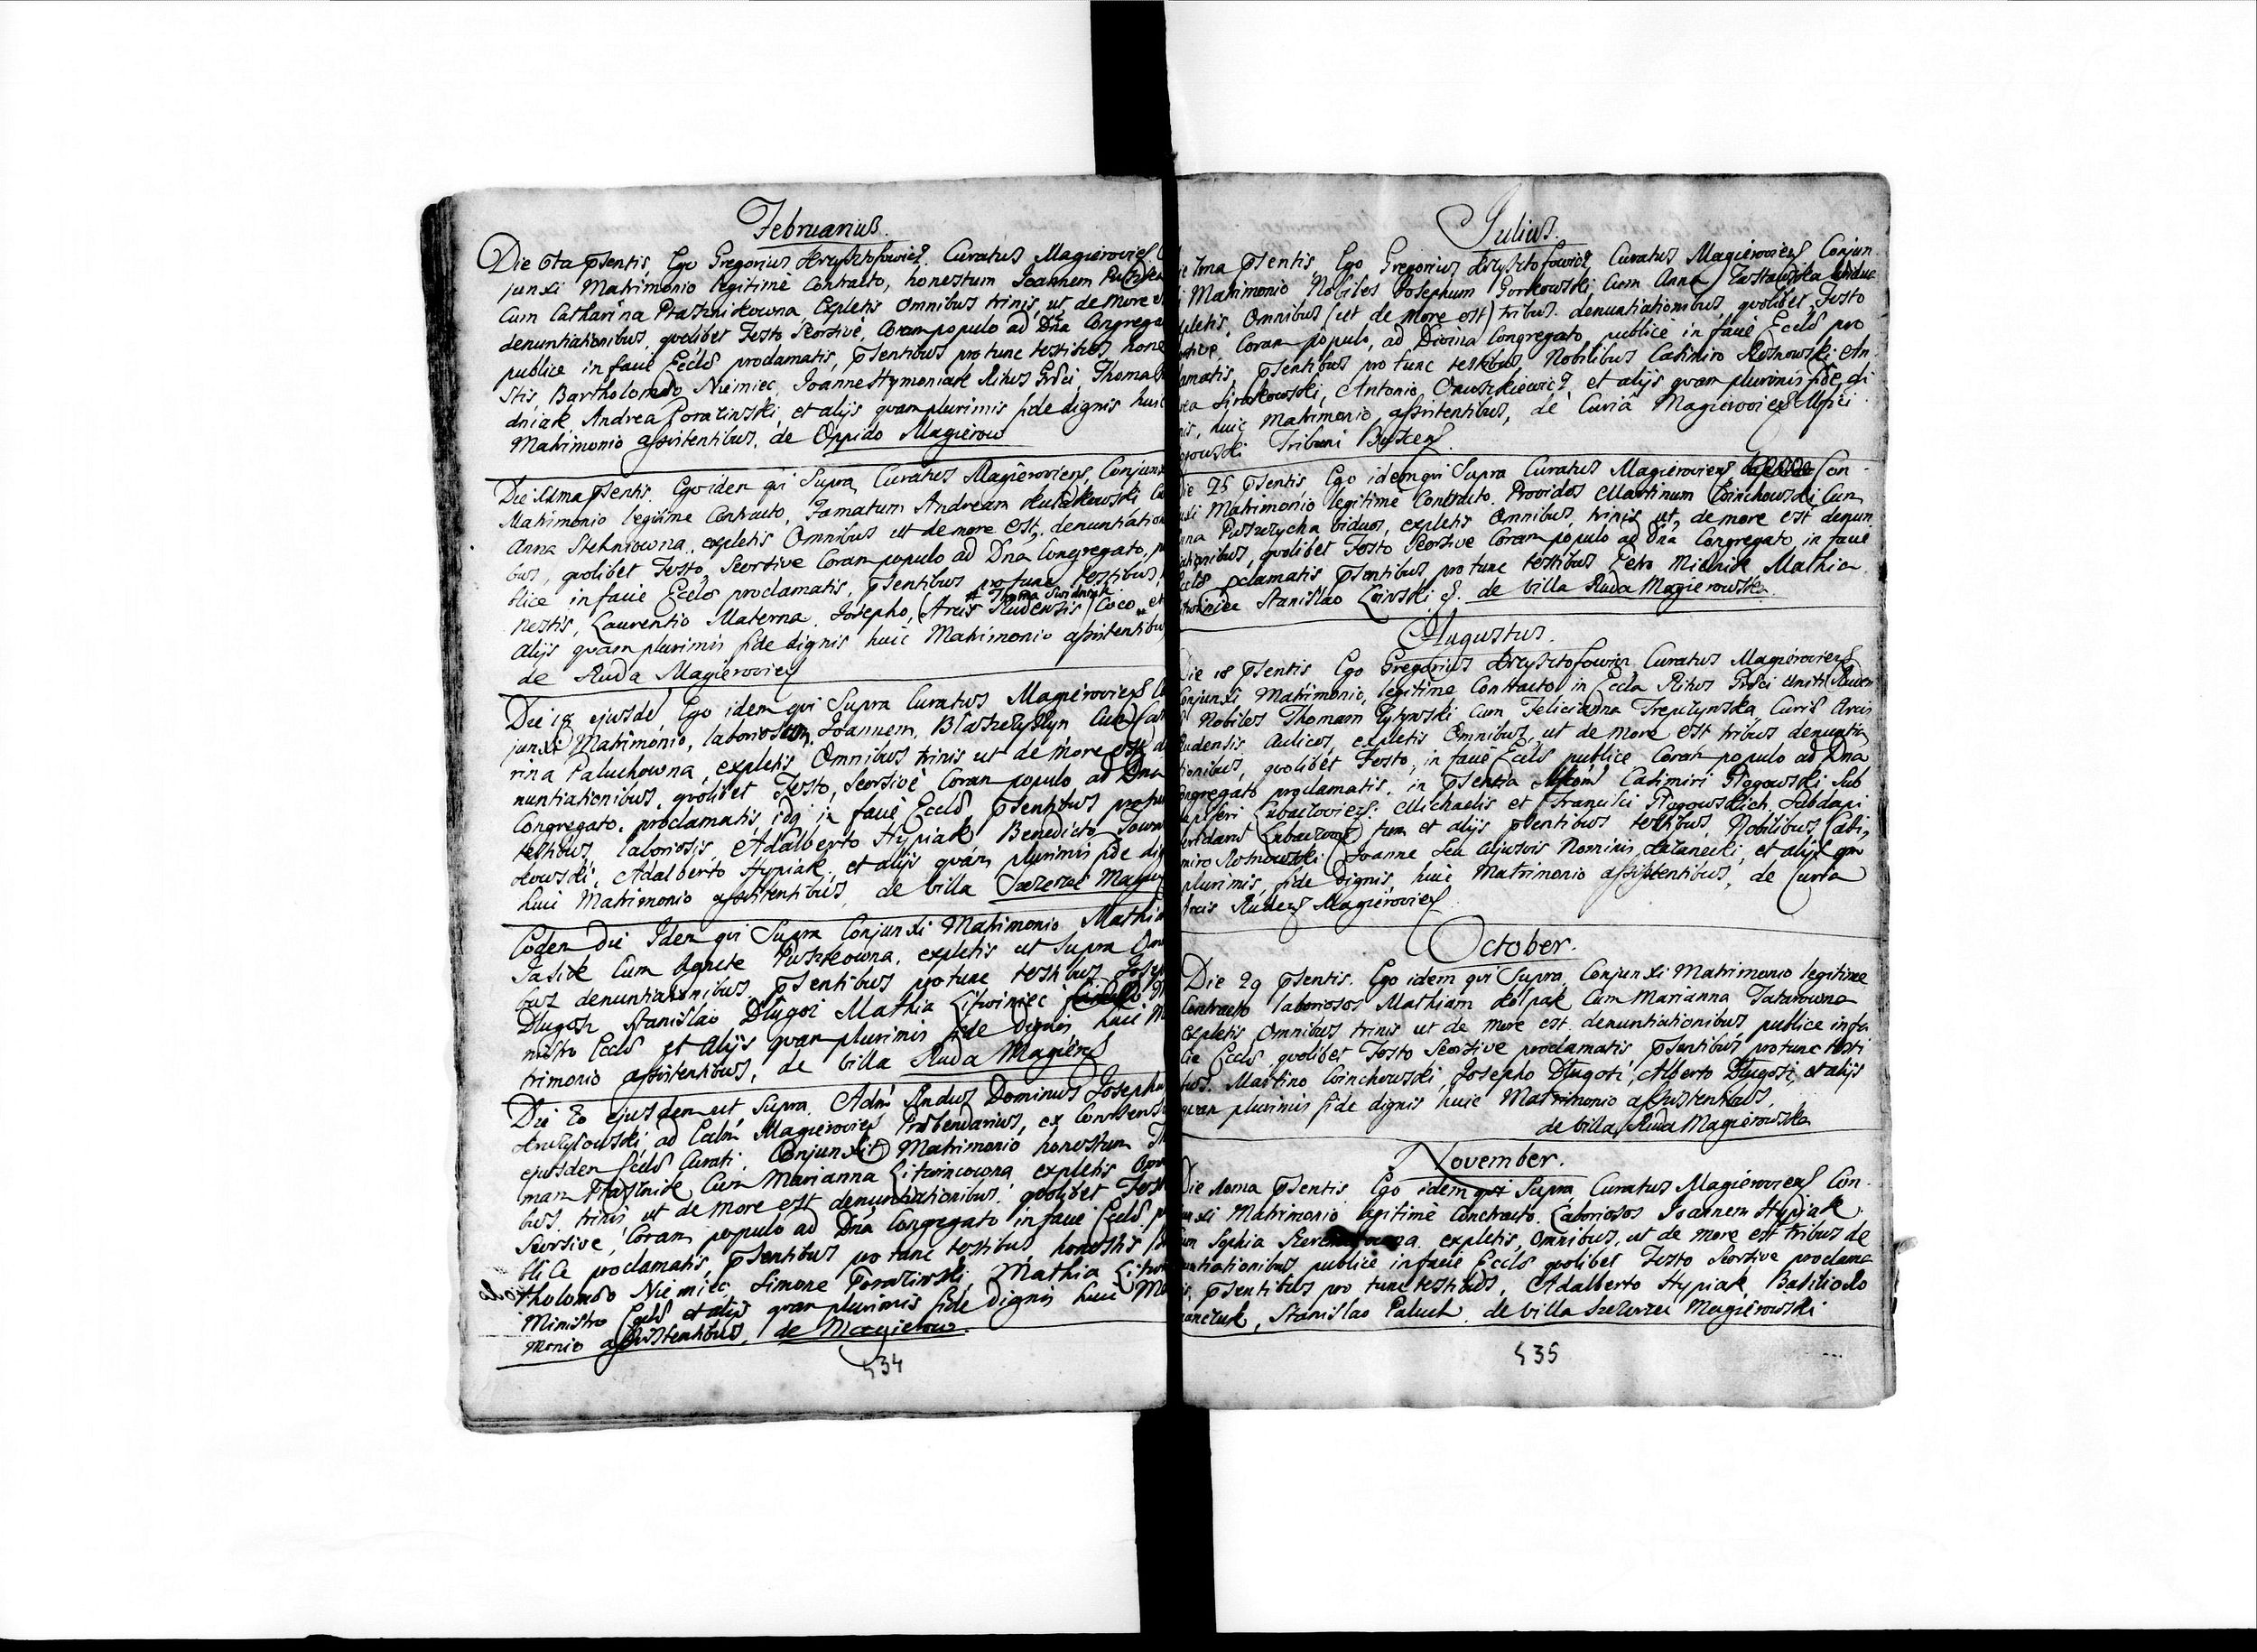 Februarius.
Die 6ta psentis, Ego Gregorius Krysztofowicz Curatus Magieroviens
junxi Matrimonio legitimè Contracto, honestum Joannem
Cum Catharina Ptasznikowna, Expletis Omnibus trinis, ut de more
denuntiationibus, quolibet Festo Seorsivè, Coram populo ad Dna Congrega
publice in facie Eccls proclamatis, psentibus pro tunc testibus hone
stis Bartholomeo Niemiec, Joanne Hymoniak Ritus Grci, Thoma
dniak, Andrea Porazinski, et alijs quam plurimis fide dignis huic
Matrimonio assistentibus, de Oppido Magierow
Die psentis. Ego idem qui Supra Curatus Magieroviens, Conjunx
Matrimonio legitime Contracto, Famatum Andream
Anna Stehniowna, expletis Omnibus ut de more est, denuntiation
bus, quolibet Festo, Seorsive Coram populo ad Dna Congregato,
blice in facie Eccls proclamatis, psentibus pro tunc testibus,
# Thoma Swidniak
nestis, Laurentio Materna, Josepho, (Arcis Rudensis) Coco # et
alijs quam plurimis fide dignis huic Matrimonio assistentibu
de Ruda Magieroviens
Die 18 ejusde, Ego idem qui Supra Curatus Magieroviens Co
junxi Matrimonio, laboriosum, Joannem, Cum Cat
rina Paluchowna, expletis Omnibus trinis ut de more est de
nuntiationibus, quolibet Festo, Seorsivè Coram populo ad Dna
Congregato, proclamatis idq in facie Eccls psentibus pro tun
testibus laboriosis, Adalberto Hypiak Benedicto
kowski, Adalberto Hypiak, et alijs quam plurimis fide dig
huic Matrimonio assistentibus, de villa Szczerzec Magier
Eodem Die Idem qui Supra Conjunxi Matrimonio Mathia
Jasick Cum Agnete Puszkowna, expletis ut Supra Omni
bus denuntiationibus psentibus pro tunc testibus Josep
Dlugosz Stanislao Dlugosz Mathia Litwiniec
nistro Eccls et alijs quam plurimis fide dignis huic M
trimonio assistentibus, de villa Ruda Magiers
Die 20 ejusdem ut Supra. Adm Rndus Dominus Josephus
ad Ealm Magieroviens Prbendarius, ex Consensu
ejusdem Eccls Curati, Conjunxit Matrimonio honestum Th
mam Ptasznik Cum Marianna Litwincowna expletis Omni
bus trinis ut de more est denuntiationibus, quolibet Fest
Seorsive, Coram populo ad Dna Congregato in facie Eccls p
blice proclamatis, psentibus pro tunc testibus honestis Ba
tholomeo Niemiec Simone Porazinski, Mathia Litwin
Ministro Eccls et alijs quam plurimis fide dignis huic Ma
monio assistentibus, de Magierow
534
Julius.
7ma psentis, Ego Gregorius Krysztofowicz Curatus Magieroviens Conjun
Matrimonio Nobiles Josephum Gorkowski Cum Anna
pletis Omnibus (ut de More est) tribus denuntiationibus, quolibet Festo
Coram populo, ad Divina Congregato publice in facie Eccls pro
lamatis, psentibus pro tunc testibus, Nobilibus Casimiro Rosnowski An
rea Sirakowski, Antonio Onuszkiewicz et alijs quam plurimis fide di
nis, huic Matrimonio assistentibus, de Curiâ Magieroviens
rowski Tribuni
Die 25 psentis Ego idem qui Supra Curatus Magieroviens Con
Matrimonio legitimè Contracto Providos Martinum Coinchowski Cum
nna viduos, expletis Omnibus, trinis ut, de more est denun
iationibus, quolibet Festo Seorsive Coram populo ad Dna Congregato in facie
Eccls pclamatis psentibus pro tunc testibus Petro Mielnik Mathia
Stanislao de villa Ruda Magierowska
Augustus.
Die 18 psentis Ego Gregorius Krysztofowicz Curatus Magieroviens
Conjunxi Matrimonio, legitime Contracto in Eccla Ritus Grci Uniti Ruden
Nobiles Thomam Cum Felicianna Trepczynska Curiæ Arcis
Rudensis Aulicos, expletis Omnibus, ut de more est tribus denuntia
tionibus, quolibet Festo, in facie Eccls publice Coram populo ad Dna
Congregato proclamatis, in psentia Casimiri Glogowski Sub
Lubaczoviens: Michaelis et Francisci Glogowskich Subdapi
Lubaczoviens tum et alijs psentibus testibus Nobilibus, Casi,
miro Rosnowski Joanne seu alijusvis Nominis et alijs qua
plurimis, fide Dignis, huic Matrimonio assistentibus, de Curia
Arcis Rudens Magieroviens
October.
Die 29 psentis. Ego idem qui Supra, Conjunxi Matrimonio legitime
Contracto laboriosos Mathiam Kolpak Cum Marianna Tatarowna
expletis Omnibus trinis ut de more est denuntiationibus publice in fa
cie Eccls quolibet Festo Seorsive proclamatis psentibus pro tunc testi
bus. Martino Coinchowski, Josepho Dlugosz, Alberto Dlugosz, et alijs
quam plurimis fide dignis huic Matrimonio assistentibus,
de villa Ruda Magierowska
November.
Die psentis. Ego idem qui Supra, Curatus Magieroviens Con
junxi Matrimonio legitimè Contracto Laboriosos Joannem Hypiak
Cum Sophia expletis Omnibus, ut de more est tribus de
untiationibus publice in facie Eccls quolibet Festo Seorsive proclama
is, psentibus pro tunc testibus, Adalberto Hypiak, Basilio
Stanislao Paluch de villa Szczerzec Magierowski
535